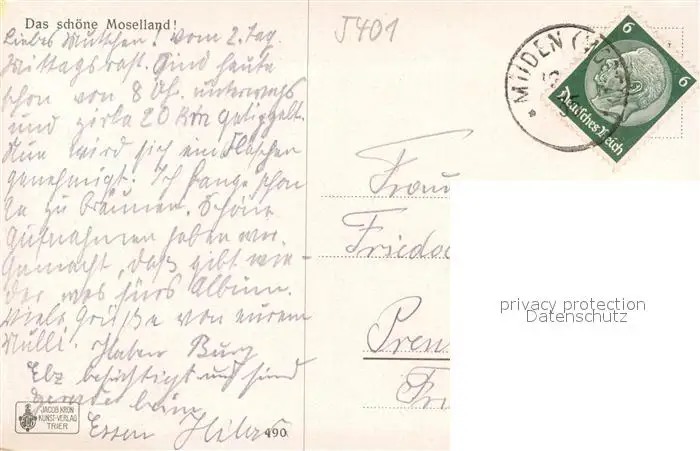 Das schöne Moselland!
J401
Liebes Mutchen! Vom 2. Tag
Mittagsrast. Sind heute
schon von 8 Uhr unterwegs
und zirka 20 km getippelt.
Nun wird sich ein Fläschen
genehmigt. Ich fange schon
an zu bräunen. Schöne
Aufnahmen haben wir
gemacht, daß gibt wie-
der was fürs Album.
Viele Grüße von eurem
Mulli. Haben Burg
Elz besichtigt und sind
gerade beim
Essen
MÜDEN (MOSEL)
6
6
Deutsches Reich
Frau
Fried
JACOB KRON
KUNST-VERLAG
TRIER
490
privacy protection
Datenschutz